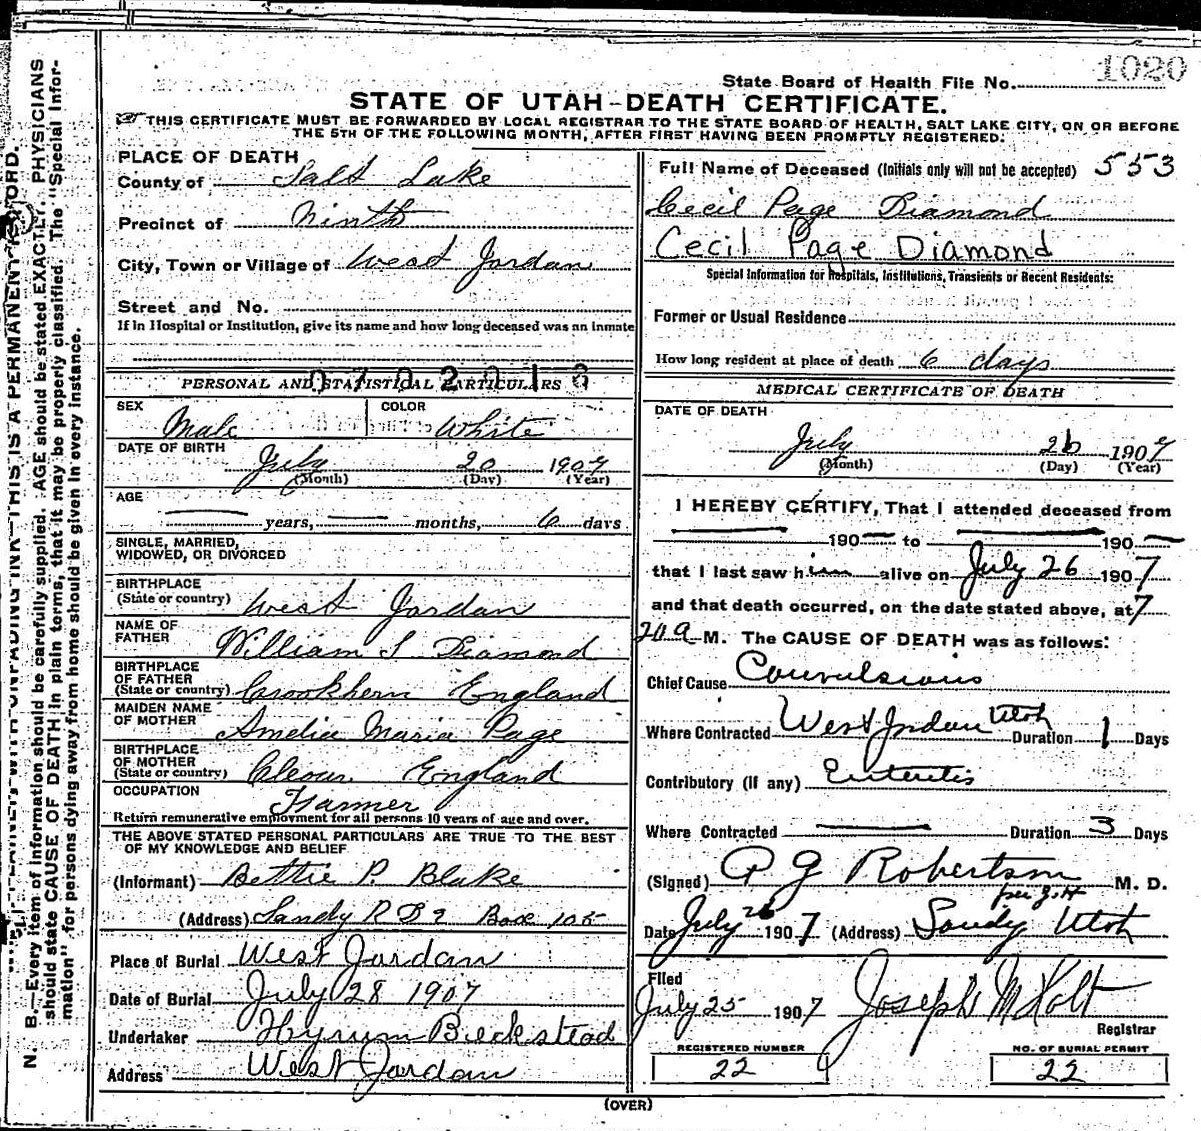 1020
State Board of Health File No.
STATE OF UTAH-DEATH CERTIFICATE.
THIS CERTIFICATE MUST BE FORWARDED BY LOCAL REGISTRAR TO THE STATE BOARD OF HEALTH, SALT LAKE CITY, ON OR BEFORE
THE 5TH OF THE FOLLOWING MONTH, AFTER FIRST HAVING BEEN PROMPTLY REGISTERED.
PLACE OF DEATH
County of Salt Lake
Precinct of Ninth
City, Town or Village of West Jordan
Street and No.
If in Hospital or Institution, give its name and how long deceased was an inmate
0702018
PERSONAL AND STATISTICAL PARTICULARS
SEX Male COLOR White
DATE OF BIRTH July 20 1907
(Month) (Day) (Year)
AGE
years, months, 6 days
SINGLE, MARRIED,
WIDOWED, OR DIVORCED
BIRTHPLACE
(State or country) West Jordan
NAME OF
FATHER William S Diamond
BIRTHPLACE
OF FATHER
(State or country) Crookhern England
MAIDEN NAME
OF MOTHER Amelia Maria Page
BIRTHPLACE
OF MOTHER
(State or country) England
OCCUPATION Farmer
Return remunerative employment for all persons 10 years of age and over.
THE ABOVE STATED PERSONAL PARTICULARS ARE TRUE TO THE BEST
OF MY KNOWLEDGE AND BELIEF
(Informant) Bettie P. Blake
(Address) Sandy R D 2 Box 105
Place of Burial West Jordan
Date of Burial July 28 1907
Undertaker Hyrum Beckstead
Address West Jordan
Full Name of Deceased (Initials only will not be accepted) 553
Cecil Page Diamond
Cecil Page Diamond
Special Information for Hospitals, Institutions, Transients or Recent Residents:
Former or Usual Residence
How long resident at place of death 6 days
MEDICAL CERTIFICATE OF DEATH
DATE OF DEATH
July 26 1907
(Month) (Day) (Year)
I HEREBY CERTIFY, That I attended deceased from
190 to 190
that I last saw him alive on July 26 1907
and that death occurred, on the date stated above, at 7
20 a M. The CAUSE OF DEATH was as follows:
Chief Cause Convulsions
Where Contracted West Jordan Utah Duration 1 Days
Contributory (if any) Enteritis
Where Contracted Duration 3 Days
(Signed) P G Robertson M. D.
Date July 26 1907 (Address) Sandy Utah
Filed
July 25 1907 Joseph M Holt
Registrar
REGISTERED NUMBER
22
NO. OF BURIAL PERMIT
22
(OVER)
N. B. Every item of information should be carefully supplied. AGE should be stated EXACTLY. PHYSICIANS
should state CAUSE OF DEATH in plain terms, that it may be properly classified. The "Special Infor-
mation" for persons dying away from home should be given in every instance.
UNFADING INK—THIS IS A PERMANENT RECORD.